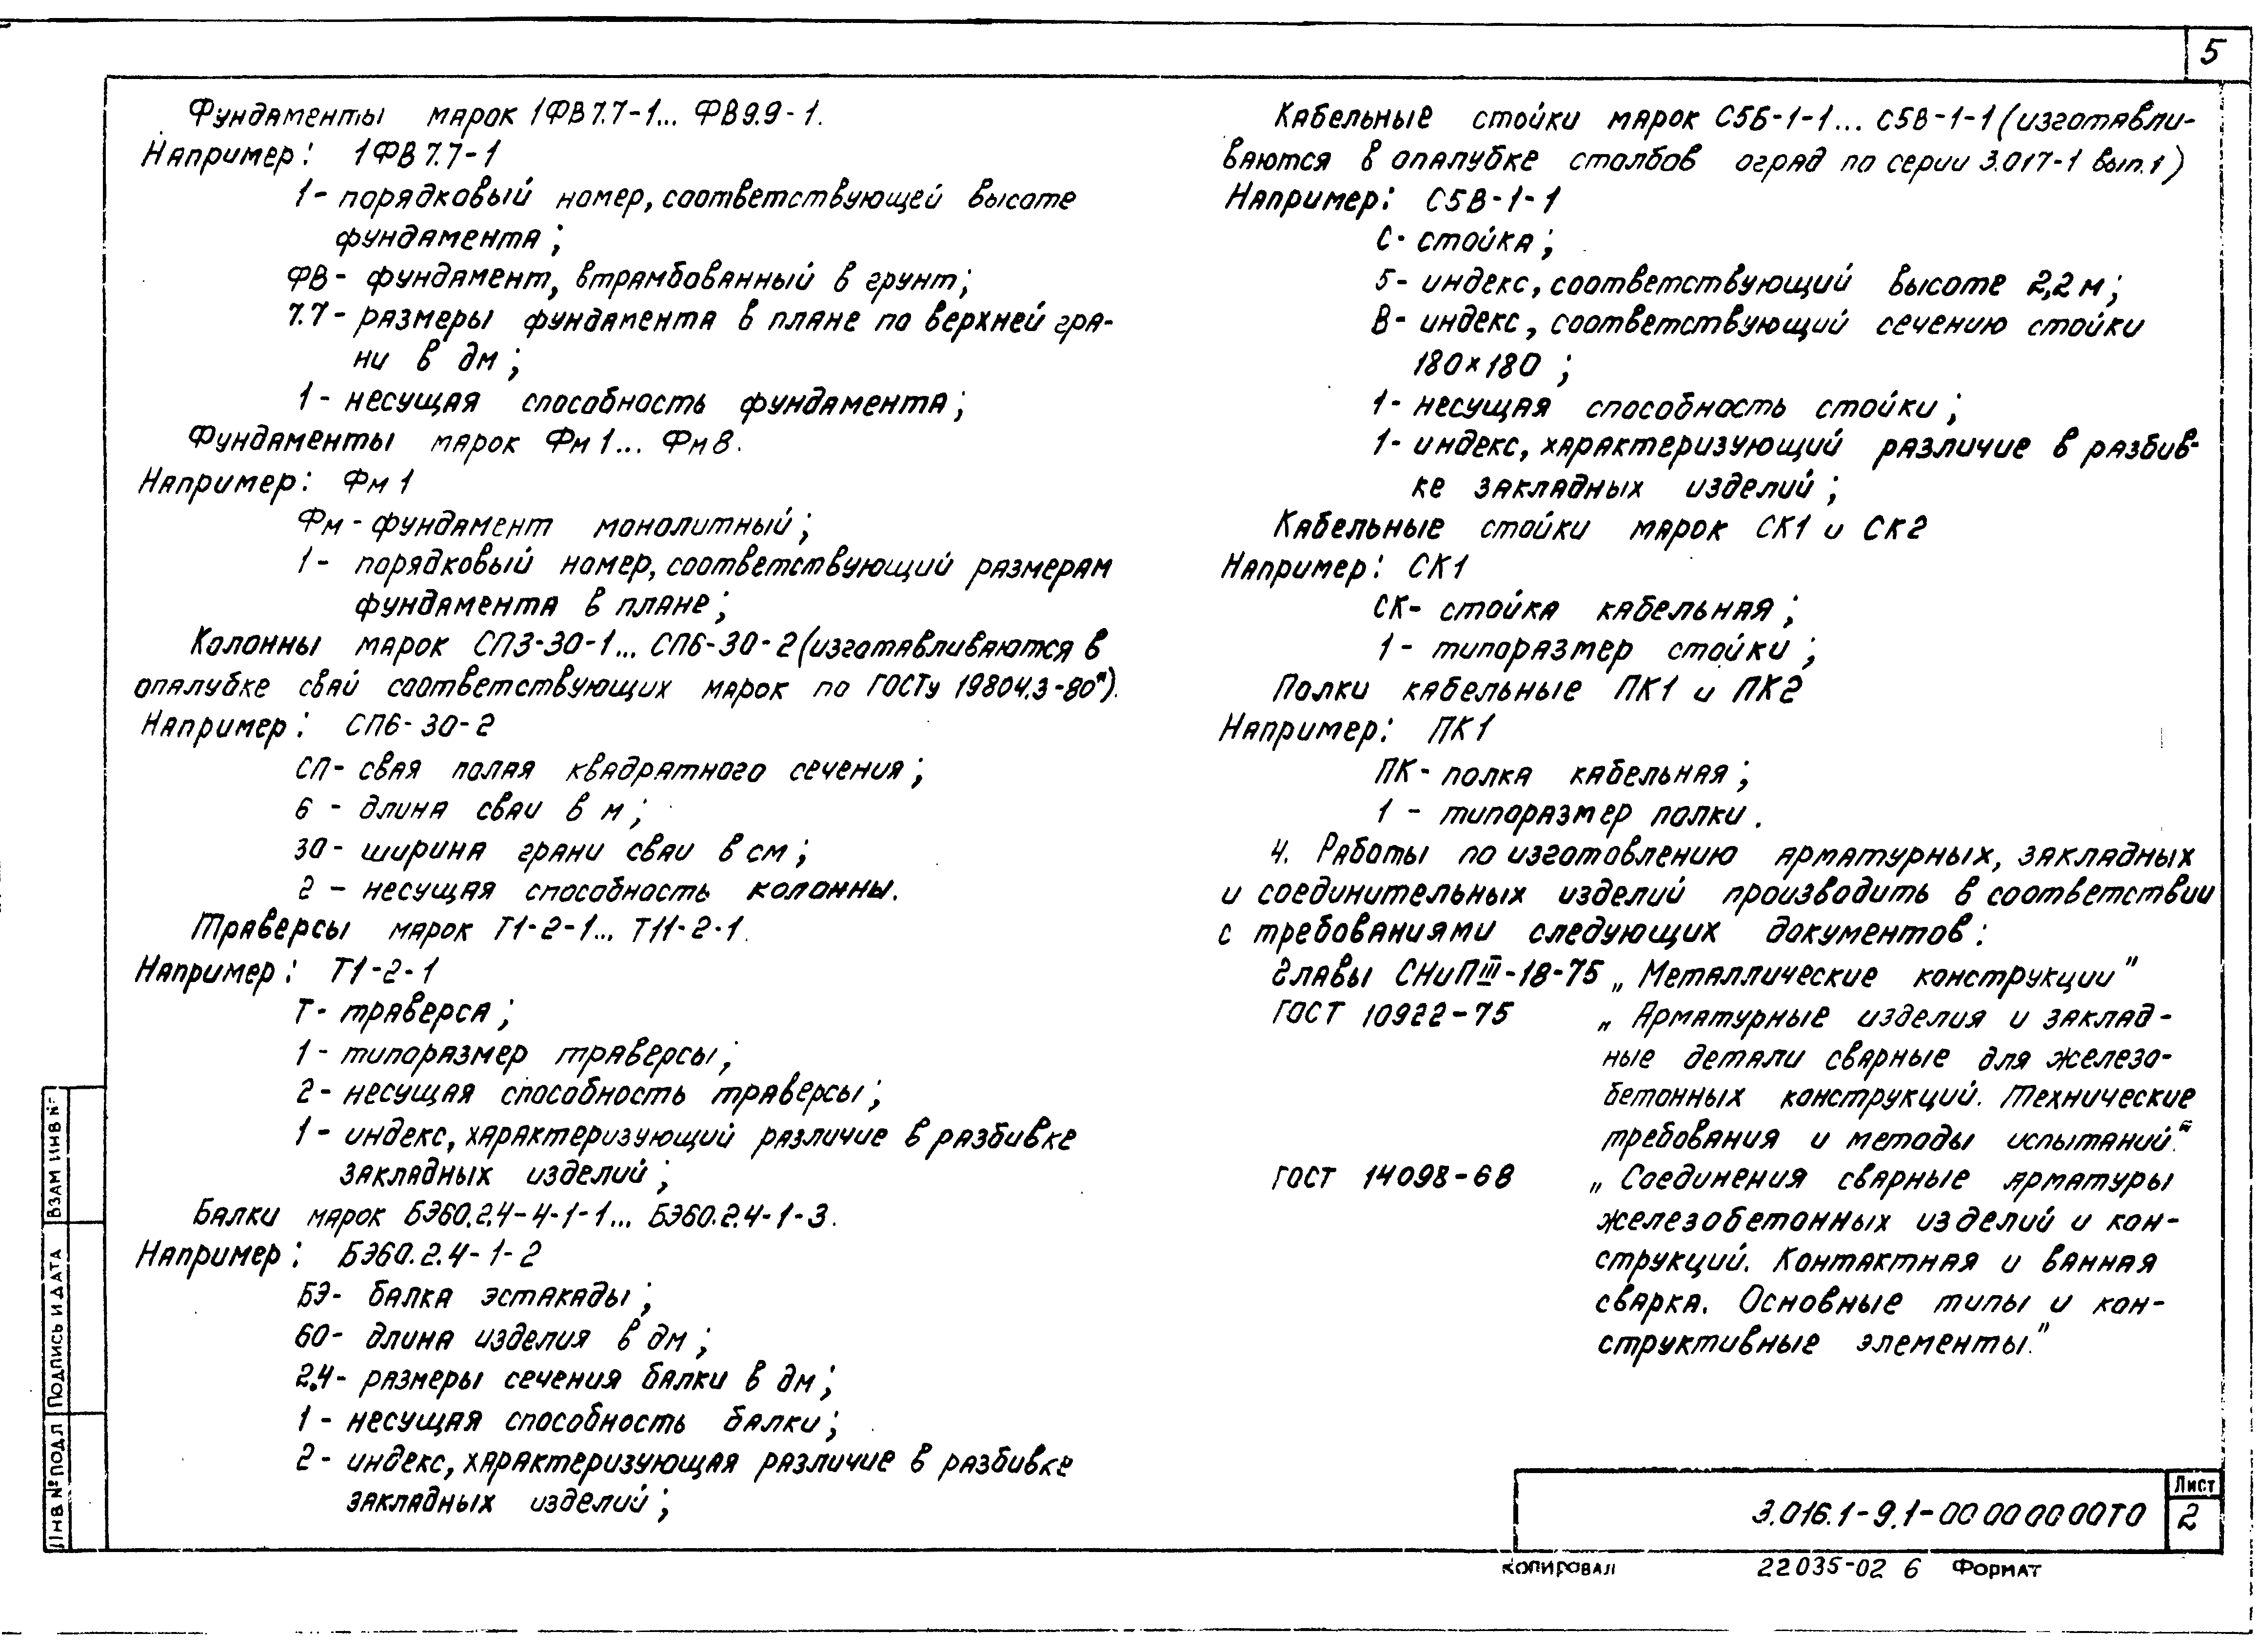 5
Фундаменты марок 1ФВ7.7-1... ФВ9.9-1.
Например: 1ФВ7.7-1
1- порядковый номер, соответствующей высоте
фундамента;
ФВ- фундамент, втрамбованный в грунт;
7.7- размеры фундамента в плане по верхней гра-
ни в дм;
1- несущая способность фундамента;
Фундаменты марок Фм1... Фм8.
Например: Фм1
Фм- фундамент монолитный;
1- порядковый номер, соответствующий размерам
фундамента в плане;
Колонны марок СП3-30-1... СП6-30-2 (изготавливаются в
опалубке свай соответствующих марок по ГОСТу 19804.3-80*).
Например: СП6-30-2
СП- свая полая квадратного сечения;
6 - длина сваи в м;
30- ширина грани сваи в см;
2 - несущая способность колонны.
Траверсы марок Т1-2-1... Т11-2-1.
Например: Т1-2-1
Т- траверса;
1- типоразмер траверсы;
2- несущая способность траверсы;
1- индекс, характеризующий различие в разбивке
закладных изделий;
Балки марок БЭ60.2.4-4-1-1... БЭ60.2.4-1-3.
Например: БЭ60.2.4-1-2
БЭ- балка эстакады;
60- длина изделия в дм;
2.4- размеры сечения балки в дм;
1- несущая способность балки;
2- индекс, характеризующая различие в разбивке
закладных изделий;
Кабельные стойки марок С5Б-1-1... С5В-1-1 (изготавли-
ваются в опалубке столбов оград по серии 3.017-1 вып.1)
Например: С5В-1-1
С- стойка;
5- индекс, соответствующий высоте 2,2 м;
В- индекс, соответствующий сечению стойки
180×180;
1- несущая способность стойки;
1- индекс, характеризующий различие в разбив-
ке закладных изделий;
Кабельные стойки марок СК1 и СК2
Например: СК1
СК- стойка кабельная;
1- типоразмер стойки;
Полки кабельные ПК1 и ПК2
Например: ПК1
ПК- полка кабельная;
1 - типоразмер полки.
4. Работы по изготовлению арматурных, закладных
и соединительных изделий производить в соответствии
с требованиями следующих документов:
главы СНиП III-18-75 „Металлические конструкции"
ГОСТ 10922-75 „Арматурные изделия и заклад-
ные детали сварные для железо-
бетонных конструкций. Технические
требования и методы испытаний."
ГОСТ 14098-68 „Соединения сварные арматуры
железобетонных изделий и кон-
струкций. Контактная и ванная
сварка. Основные типы и кон-
структивные элементы."
ВЗАМ ИНВ №
ПОДПИСЬ И ДАТА
ИНВ № ПОДЛ
3.016.1-9.1-00 00 00 00ТО
Лист
2
КОПИРОВАЛ 22035-02 6 ФОРМАТ